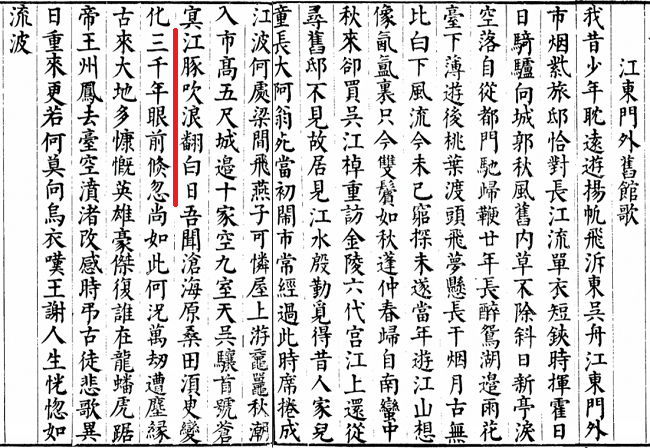 江東門外舊館歌
我昔少年耽遠遊揚帆飛泝東吳舟江東門外
市烟縶旅邸恰對長江流單衣短鋏時揮霍日
日騎驢向城郭秋風舊內草不除斜日新亭淚
空落自從都門馳歸鞭廿年長醉鴛湖邉雨花
臺下薄遊後桃葉渡頭飛夢懸長干烟月古無
比白下風流今未已窮探未遂當年遊江山想
像氤氳裏只今雙鬢如秋蓬仲春歸自南蠻中
秋來卻買吳江棹重訪金陵六代宮江上還從
尋舊邸不見故居見江水殷勤覓得昔人家兒
童長大阿翁死當初鬧市常經過此時席捲成
江波何處梁間飛燕子可憐屋上游黿鼉秋潮
入市髙五尺城邉十家空九室天吳驤首號蒼
冥江豚吹浪翻白日吾聞滄海原桑田湏臾變
化三千年眼前倐忽尚如此何況萬劫遭塵縁
古來大地多慷慨英雄豪傑復誰在龍蟠虎踞
帝王州鳳去臺空濆渚改感時弔古徒悲歌異
日重來更若何莫向烏衣嘆王謝人生恍惚如
流波